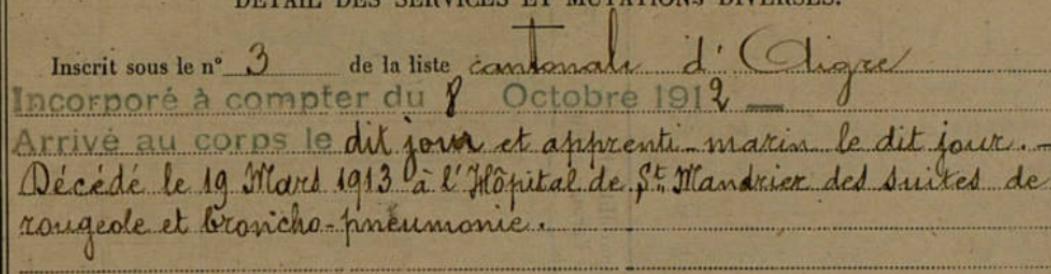 DÉTAIL DES SERVICES ET MUTATIONS DIVERSES.
Inscrit sous le n° 3 de la liste cantonale d'Aigre
Incorporé à compter du 8 Octobre 1912 —
Arrivé au corps le dit jour et apprenti-marin le dit jour. -
Décédé le 19 Mars 1913 à l'Hôpital de St. Mandrier des suites de
rougeole et broncho-pneumonie.